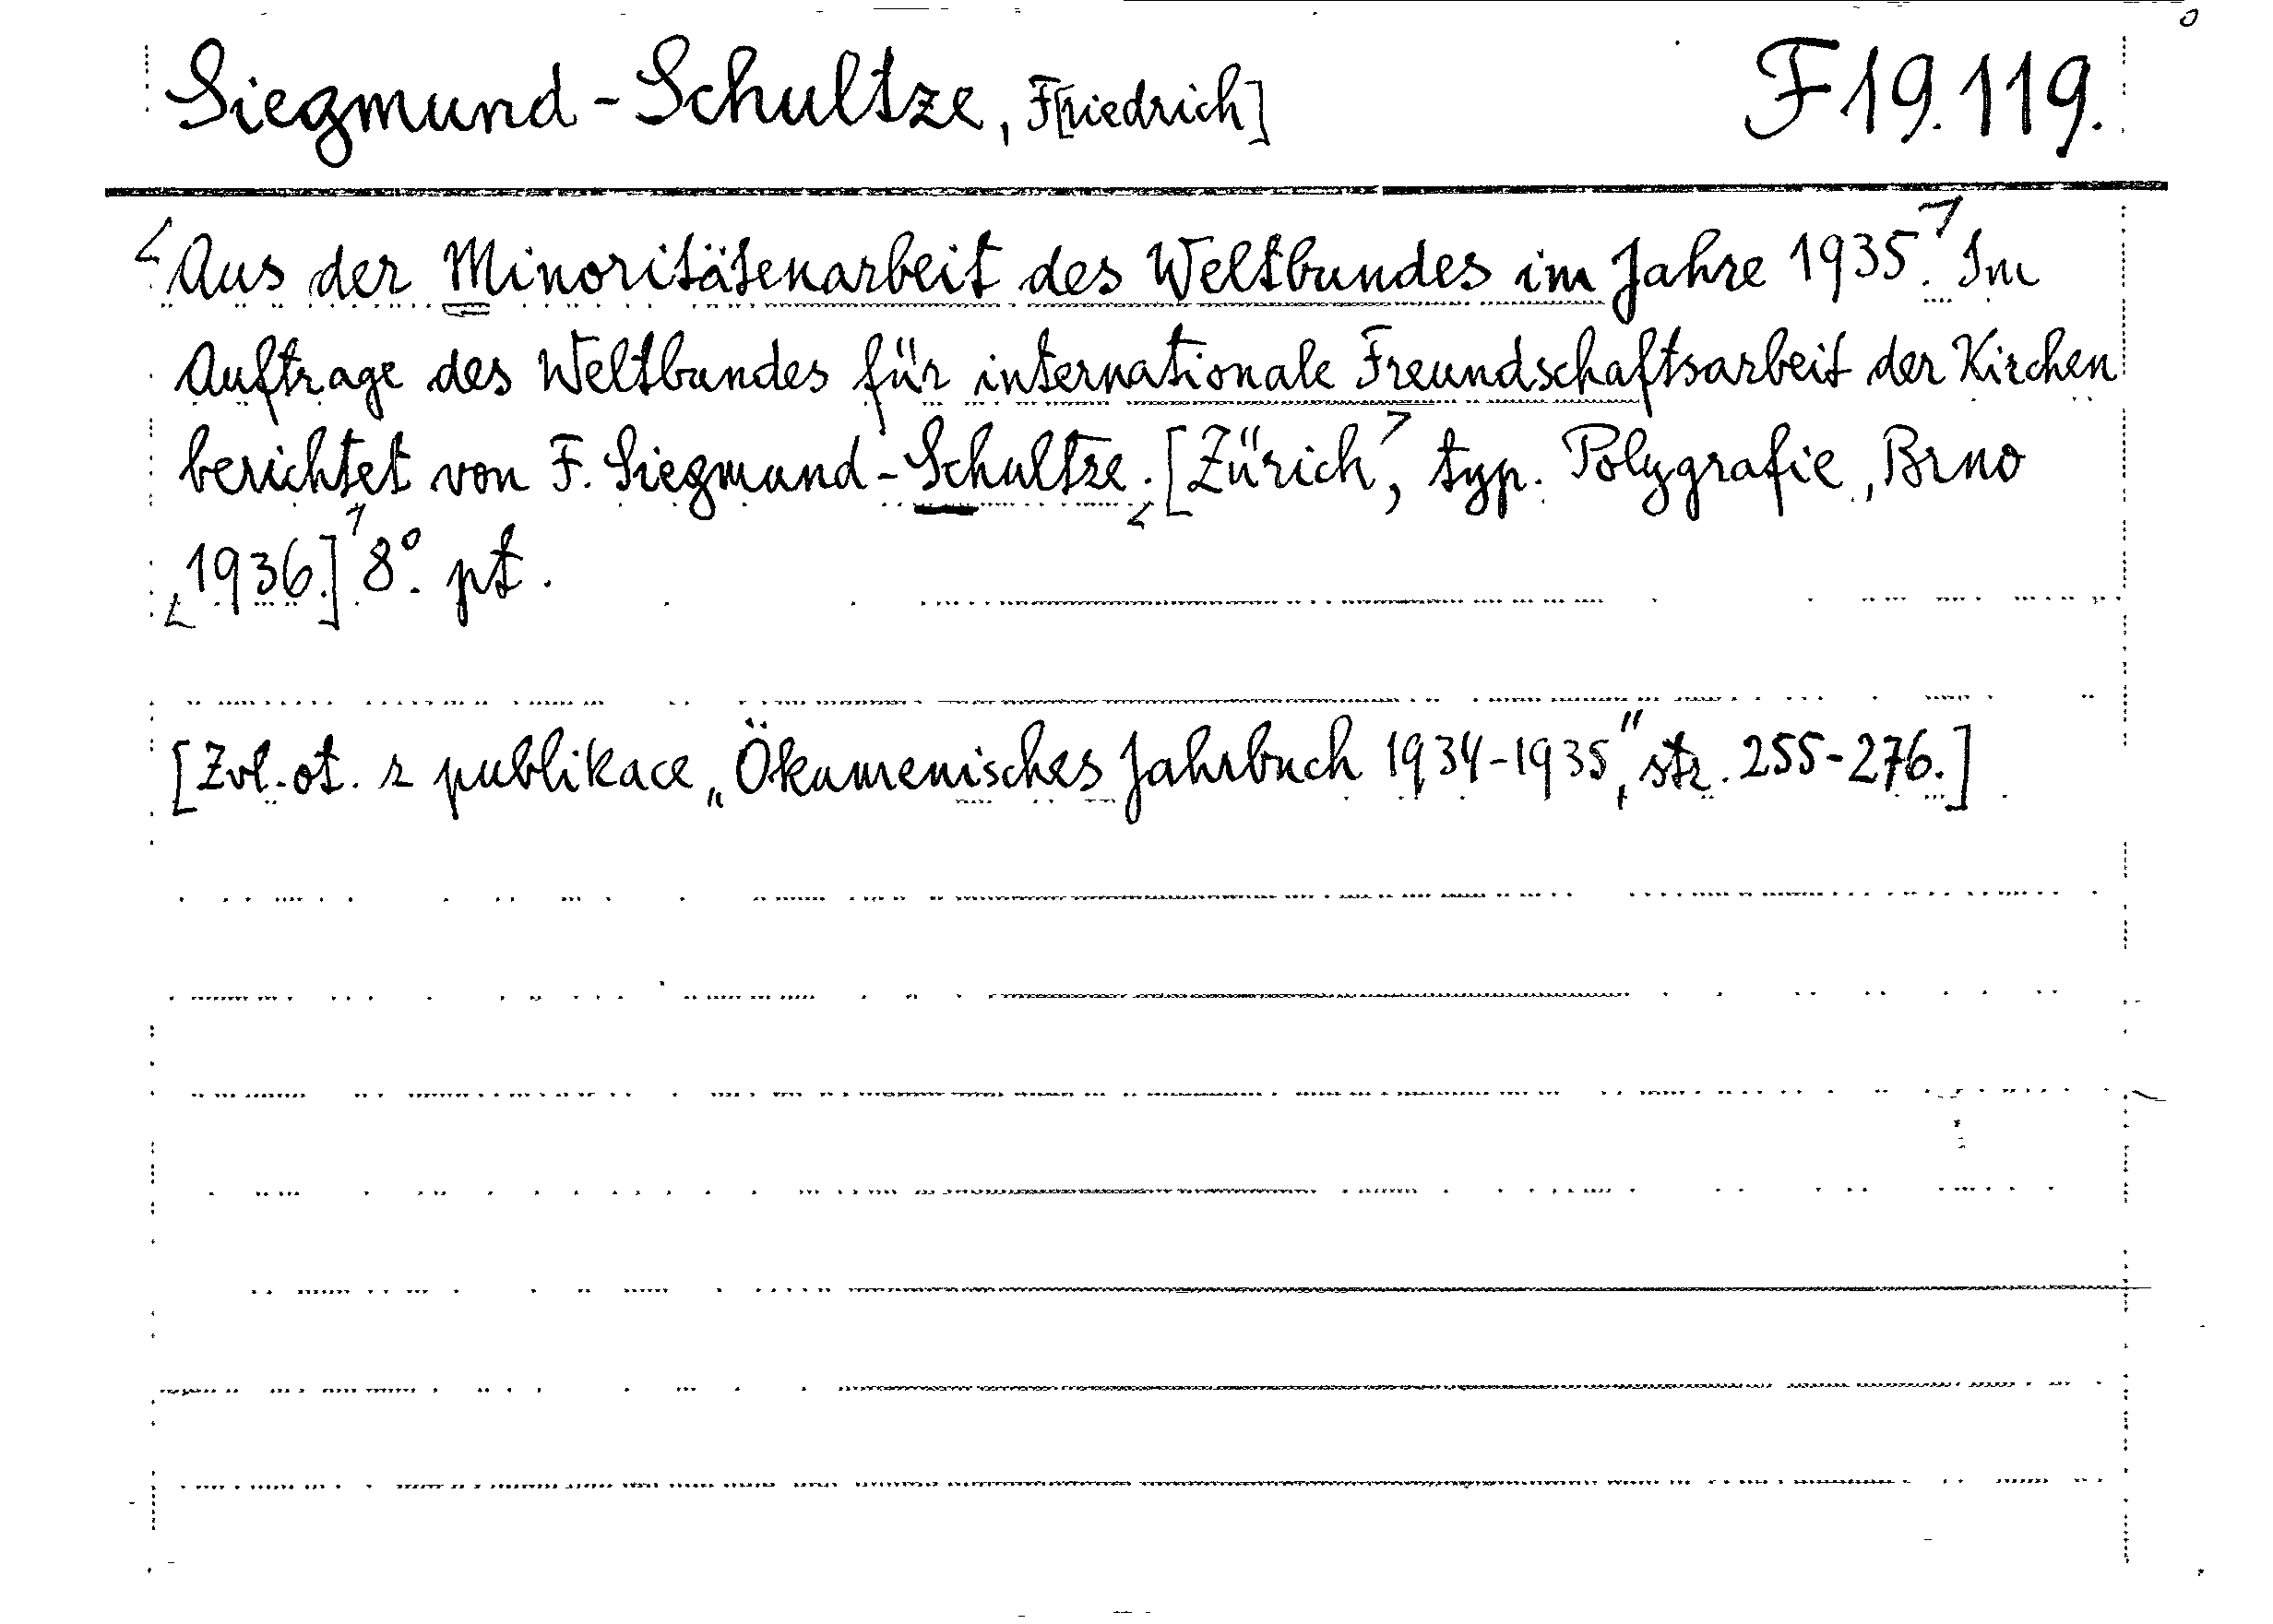 Siegmund-Schultze, F[riedrich] F 19.119.
Aus der Minoritätenarbeit des Weltbundes im Jahre 1935. Im
Auftrage des Weltbundes für internationale Freundschaftsarbeit der Kirchen
berichtet von F. Siegmund-Schultze. [Zürich, typ. Polygrafie, Brno
1936.] 8°. pt.
[Zvl. ot. z publikace „Ökumenisches Jahrbuch 1934-1935", str. 255-276.]